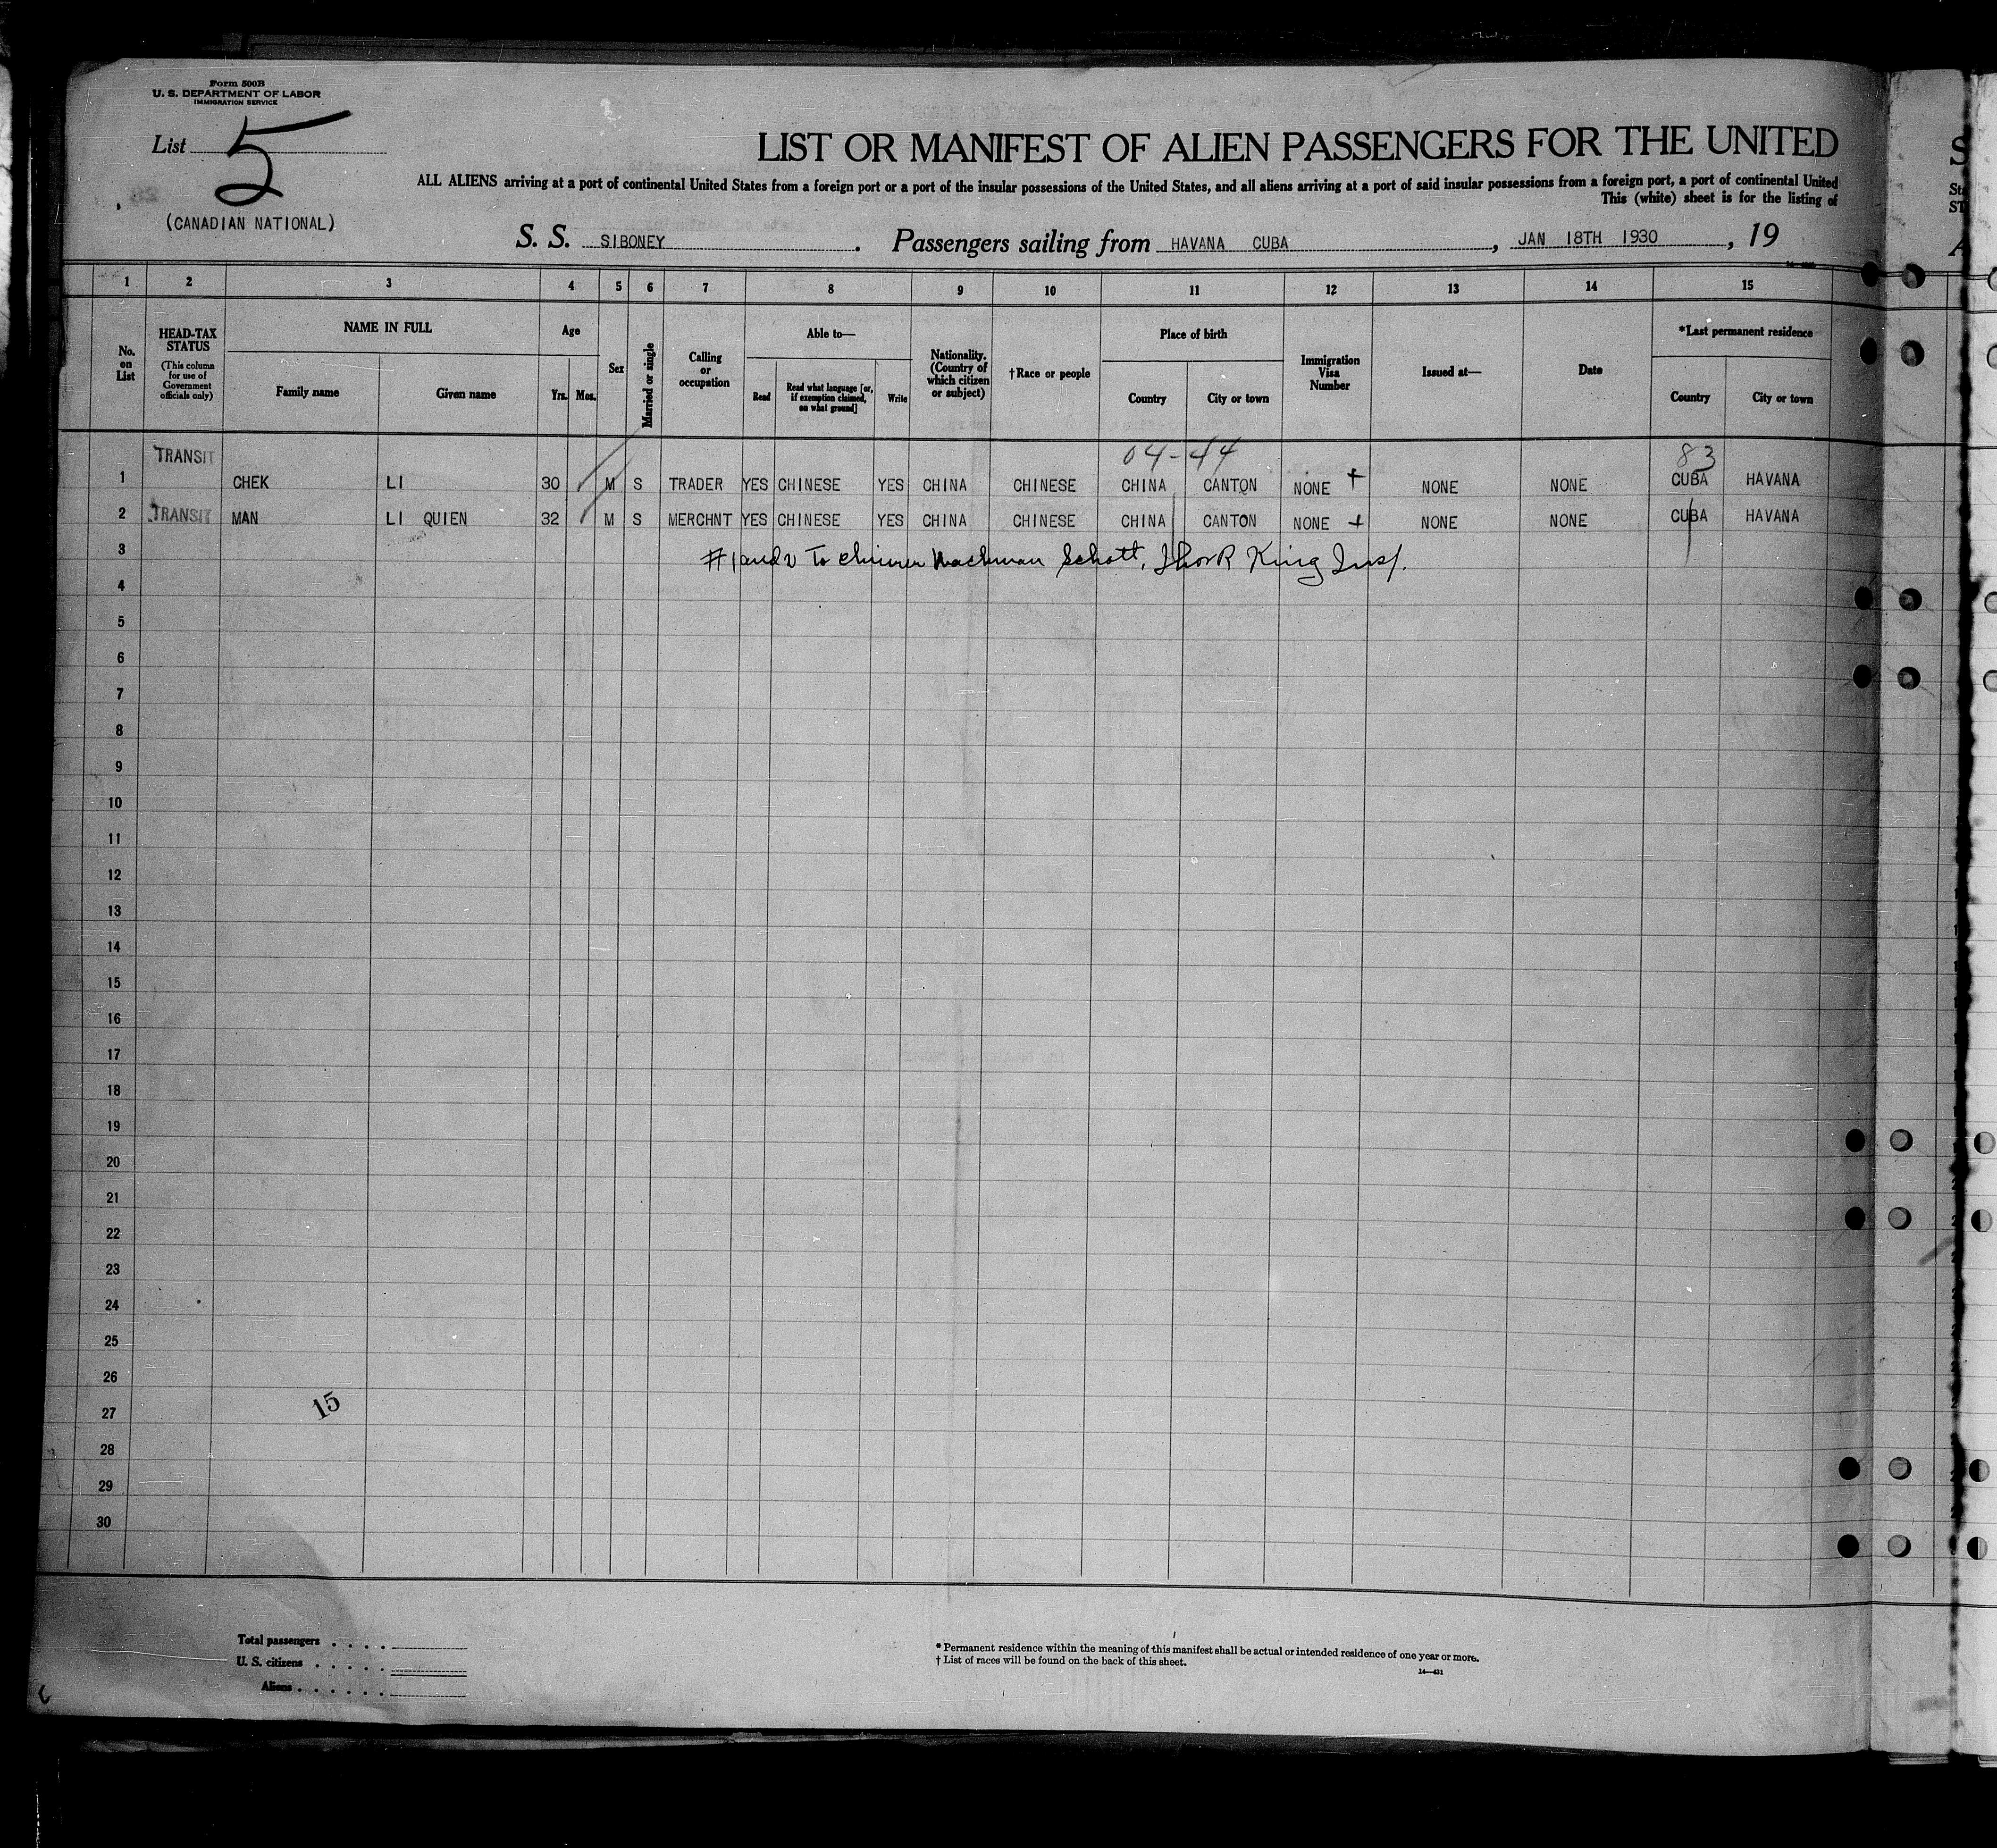 Form 500B
U. S. DEPARTMENT OF LABOR
IMMIGRATION SERVICE
List 5
(CANADIAN NATIONAL)
LIST OR MANIFEST OF ALIEN PASSENGERS FOR THE UNITED
ALL ALIENS arriving at a port of continental United States from a foreign port or a port of the insular possessions of the United States, and all aliens arriving at a port of said insular possessions from a foreign port, a port of continental United
This (white) sheet is for the listing of
S. S. SIBONEY. Passengers sailing from HAVANA CUBA, JAN 18TH 1930, 19
1 2 3 4 5 6 7 8 9 10 11 12 13 14 15
No. on List
HEAD-TAX STATUS (This column for use of Government officials only)
NAME IN FULL
Family name Given name
Age
Yrs. Mos.
Sex
Married or single
Calling or occupation
Able to—
Read Read what language [or, if exemption claimed, on what ground] Write
Nationality. (Country of which citizen or subject)
†Race or people
Place of birth
Country City or town
Immigration Visa Number
Issued at—
Date
*Last permanent residence
Country City or town
04-44 83
1 TRANSIT CHEK LI 30 M S TRADER YES CHINESE YES CHINA CHINESE CHINA CANTON NONE + NONE NONE CUBA HAVANA
2 TRANSIT MAN LI QUIEN 32 M S MERCHNT YES CHINESE YES CHINA CHINESE CHINA CANTON NONE + NONE NONE CUBA HAVANA
3 #1 and 2 To Schott, King Insp.
4
5
6
7
8
9
10
11
12
13
14
15
16
17
18
19
20
21
22
23
24
25
26
27 15
28
29
30
Total passengers
U. S. citizens
Aliens
* Permanent residence within the meaning of this manifest shall be actual or intended residence of one year or more.
† List of races will be found on the back of this sheet.
14—431